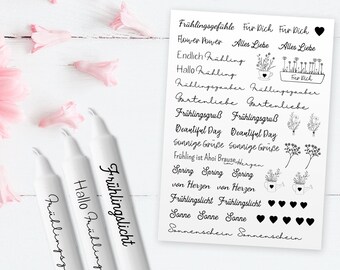 Frühlingsgefühle Für Dich Für Dich
Flower Power Alles Liebe Alles Liebe
Endlich Frühling
Hallo Frühling
Für Dich
Frühlingszauber Frühlingszauber
Gartenliebe Gartenliebe
Frühlingsgruß Frühlingsgruß
Beautiful Day Beautiful Day
Sonnige Grüße Sonnige Grüße
Frühling ist Ahoi Brause
Spring Spring Spring
von Herzen von Herzen
Frühlingslicht Frühlingslicht
Sonne Sonne Sonne
Sonnenschein Sonnenschein
Frühlings
Hallo Frühling
Frühlingslicht